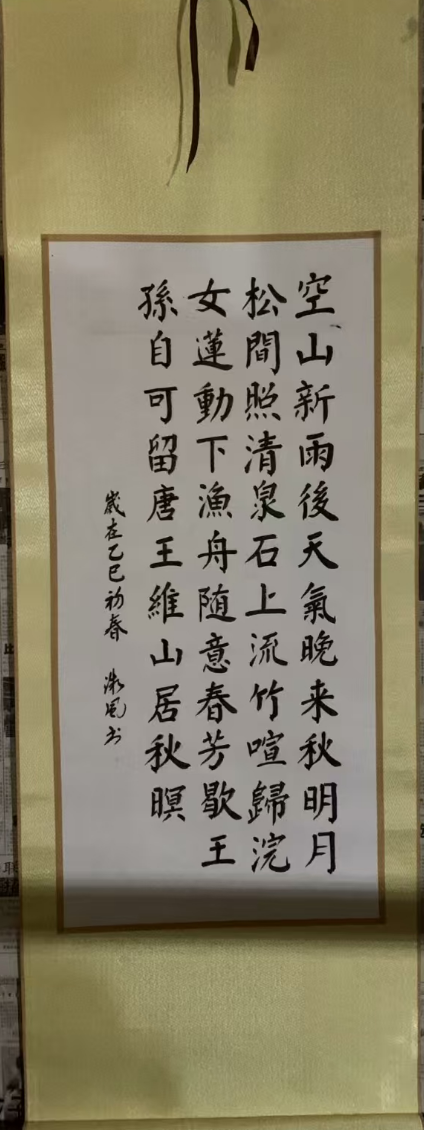 空山新雨後天氣晚来秋明月
松間照清泉石上流竹喧歸浣
女蓮動下漁舟随意春芳歇王
孫自可留唐王維山居秋暝
歲在乙巳初春